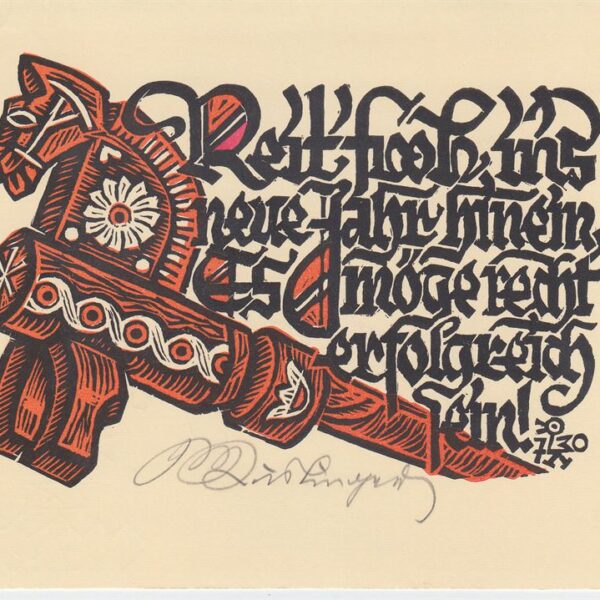 Reit' froh ins
neue Jahr hinein,
Es möge recht
erfolgreich
sein!